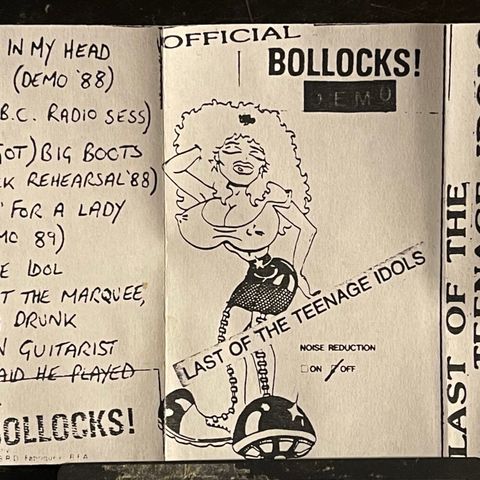 IN MY HEAD
(DEMO '88)
B.C. RADIO SESS)
OT) BIG BOOTS
K REHEARSAL '88)
' FOR A LADY
MO 89)
E IDOL
T THE MARQUEE,
DRUNK
N GUITARIST
AID HE PLAYED
BOLLOCKS!
OFFICIAL
BOLLOCKS!
DEMO
LAST OF THE TEENAGE IDOLS
NOISE REDUCTION
ON OFF
LAST OF THE
TEENAGE IDOLS